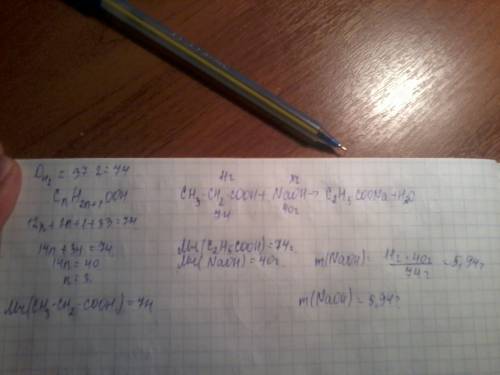 D_H2 = 37·2=74
CnH2n+1OOH
12n+2n+1+33=74
14n+34=74
14n=40
n=3.
Mr(CH3-CH2-COOH)=74
11г xг
CH3-CH2-COOH+ NaOH→ C2H5COONa+H2O
74 40г
Mr(C2H5COOH)=74г.
Mr(NaOH)=40г.
m(NaOH)= 11г·40г / 74г =5,94г
m(NaOH)=5,94г